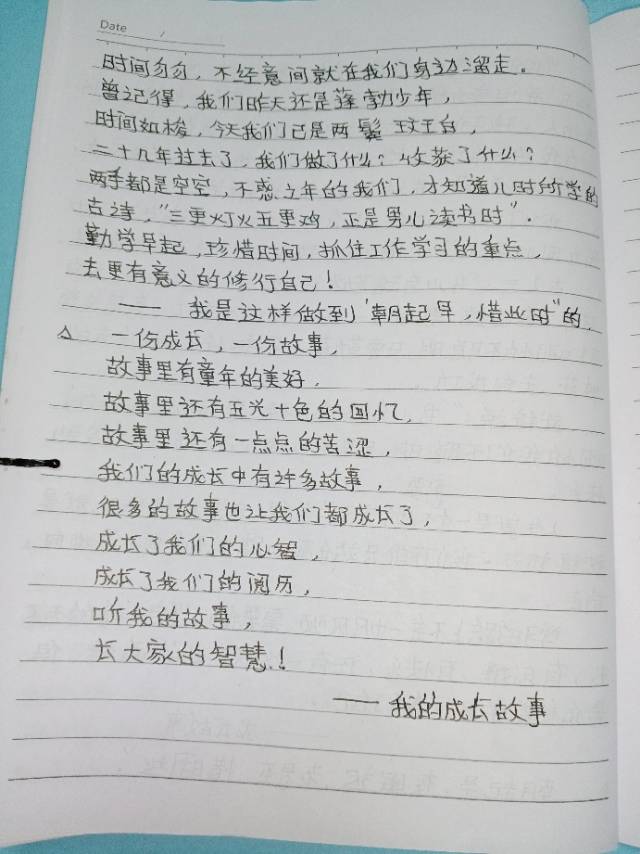 Date /
时间匆匆，不经意间就在我们身边溜走。
曾记得，我们昨天还是蓬勃少年，
时间如梭，今天我们已是两鬓斑白，
二十几年过去了，我们做了什么？收获了什么？
两手都是空空，不惑之年的我们，才知道儿时所学的
古诗，"三更灯火五更鸡，正是男儿读书时"。
勤学早起，珍惜时间，抓住工作学习的重点，
去更有意义的修行自己！
—— 我是这样做到"朝起早，惜此时"的，
△ 一份成长，一份故事，
故事里有童年的美好，
故事里还有五光十色的回忆，
故事里还有一点点的苦涩，
我们的成长中有许多故事，
很多的故事也让我们都成长了，
成长了我们的心智，
成长了我们的阅历，
听我的故事，
长大家的智慧！
—— 我的成长故事